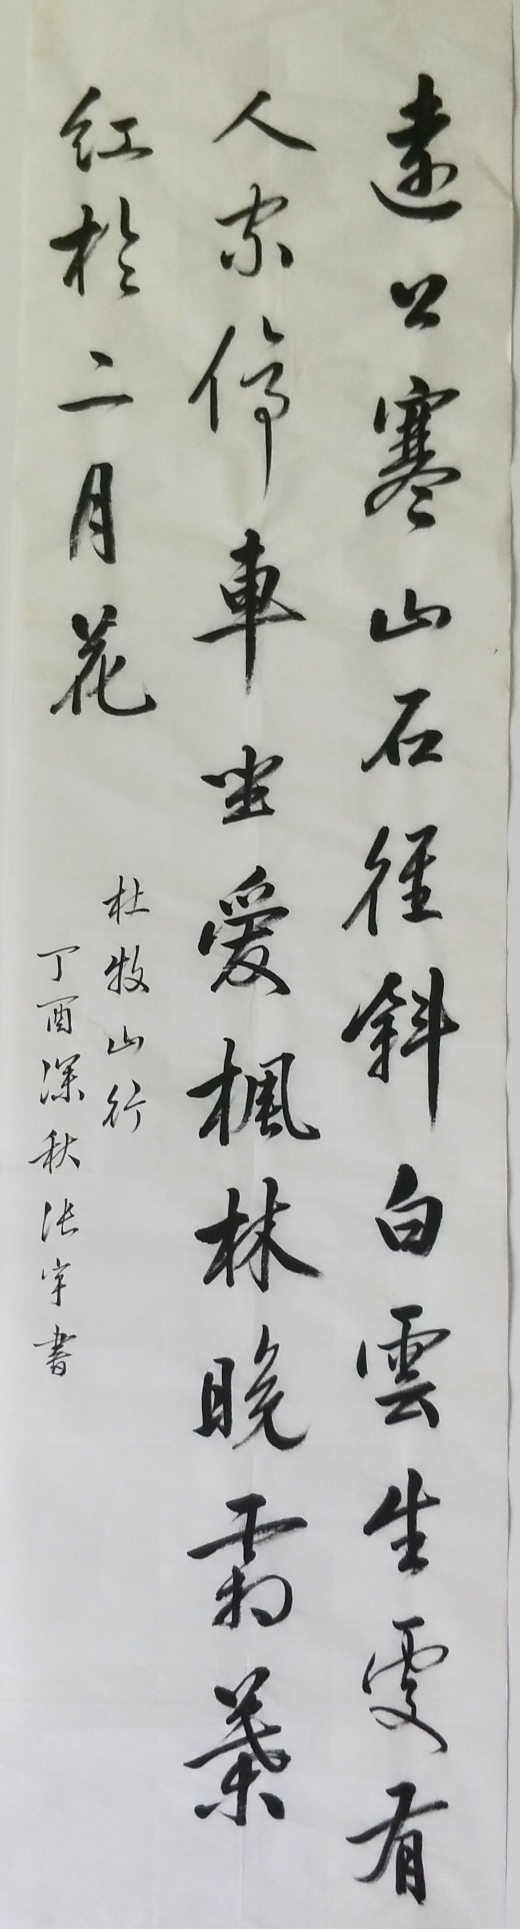 遠上寒山石徑斜白雲生處有
人家停車坐愛楓林晚霜葉
紅於二月花
杜牧山行
丁酉深秋張宇書